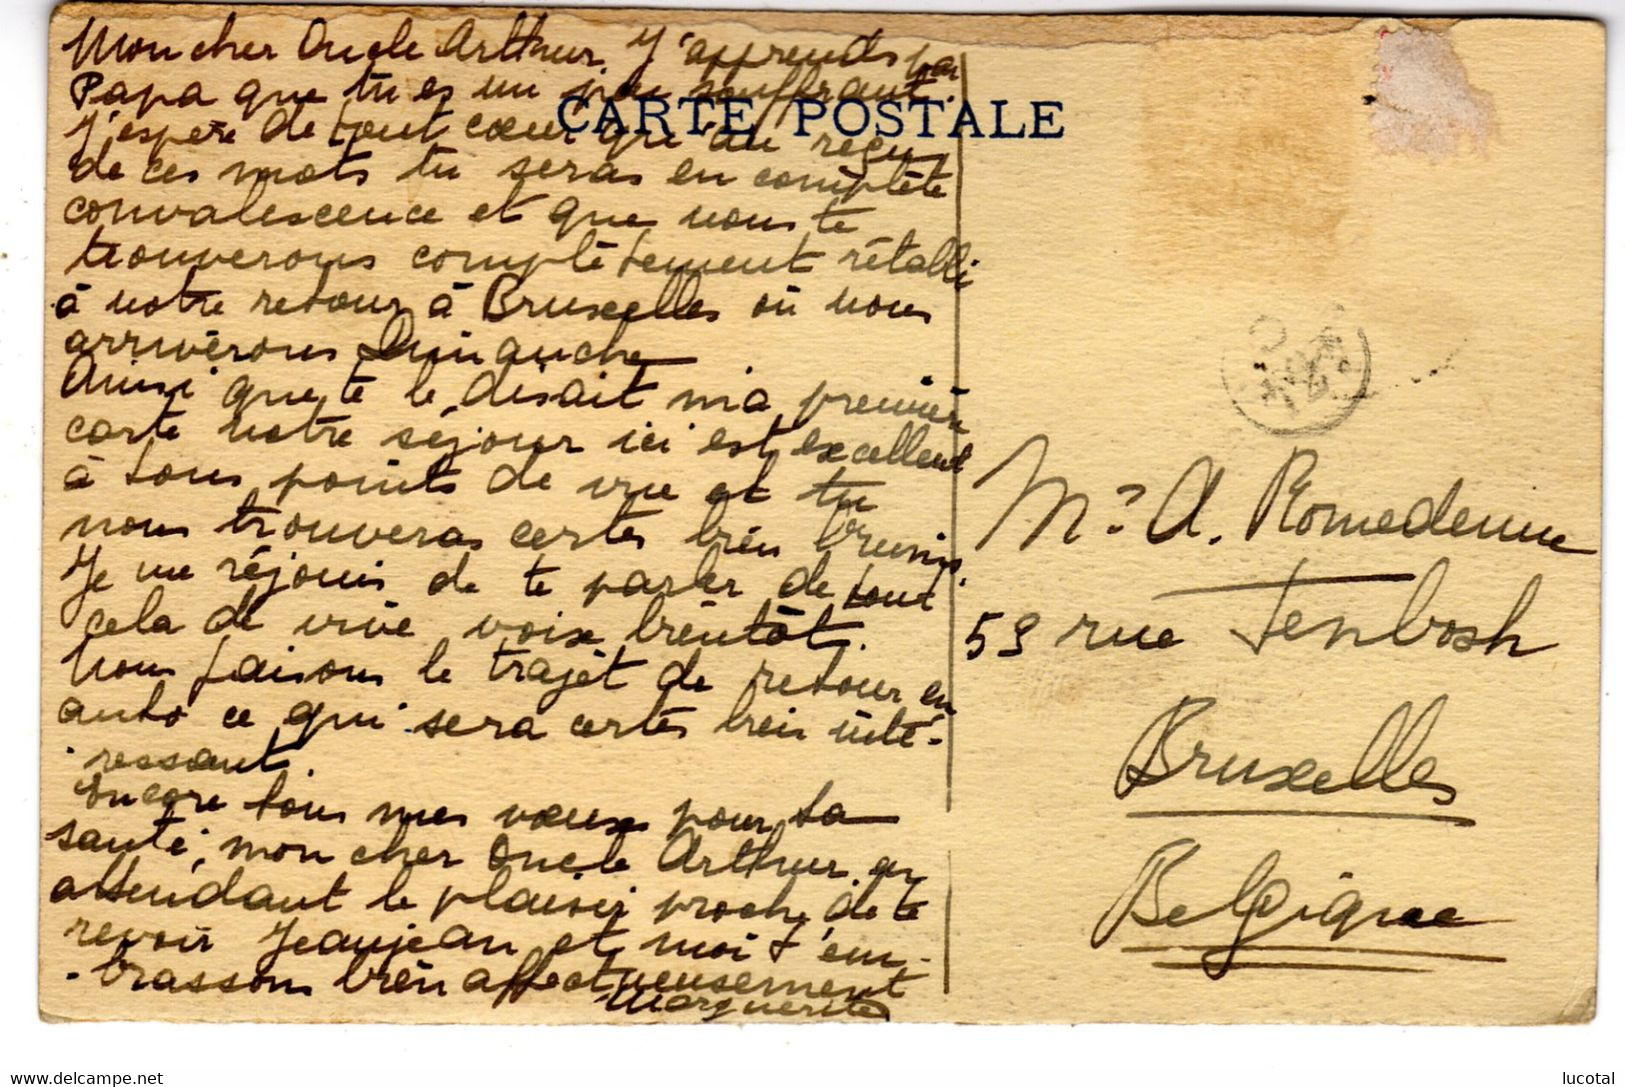 Mon cher Oncle Arthur, J'apprends par
Papa que tu es un peu souffrant.
CARTE POSTALE
J'espère de tout cœur qu'au reçu
de ces mots tu seras en complète
convalescence et que nous te
trouverons complètement rétabli
à notre retour à Bruxelles où nous
arriverons Dimanche
Ainsi que te le disait ma première
carte notre séjour ici est excellent
à tous points de vue et tu
nous trouveras certes bien brunis.
Je me réjouis de te parler de tout
cela de vive voix bientôt.
Nous faisons le trajet de retour en
auto ce qui sera certes bien inté-
ressant.
Encore tous mes vœux pour ta
santé, mon cher Oncle Arthur. en
attendant le plaisir proche de te
revoir Jeanjean et moi t'em-
brassons bien affectueusement
Marguerite
Mr A. Romedenne
59 rue Tenbosh
Bruxelles
Belgique
delcampe.net
lucotal